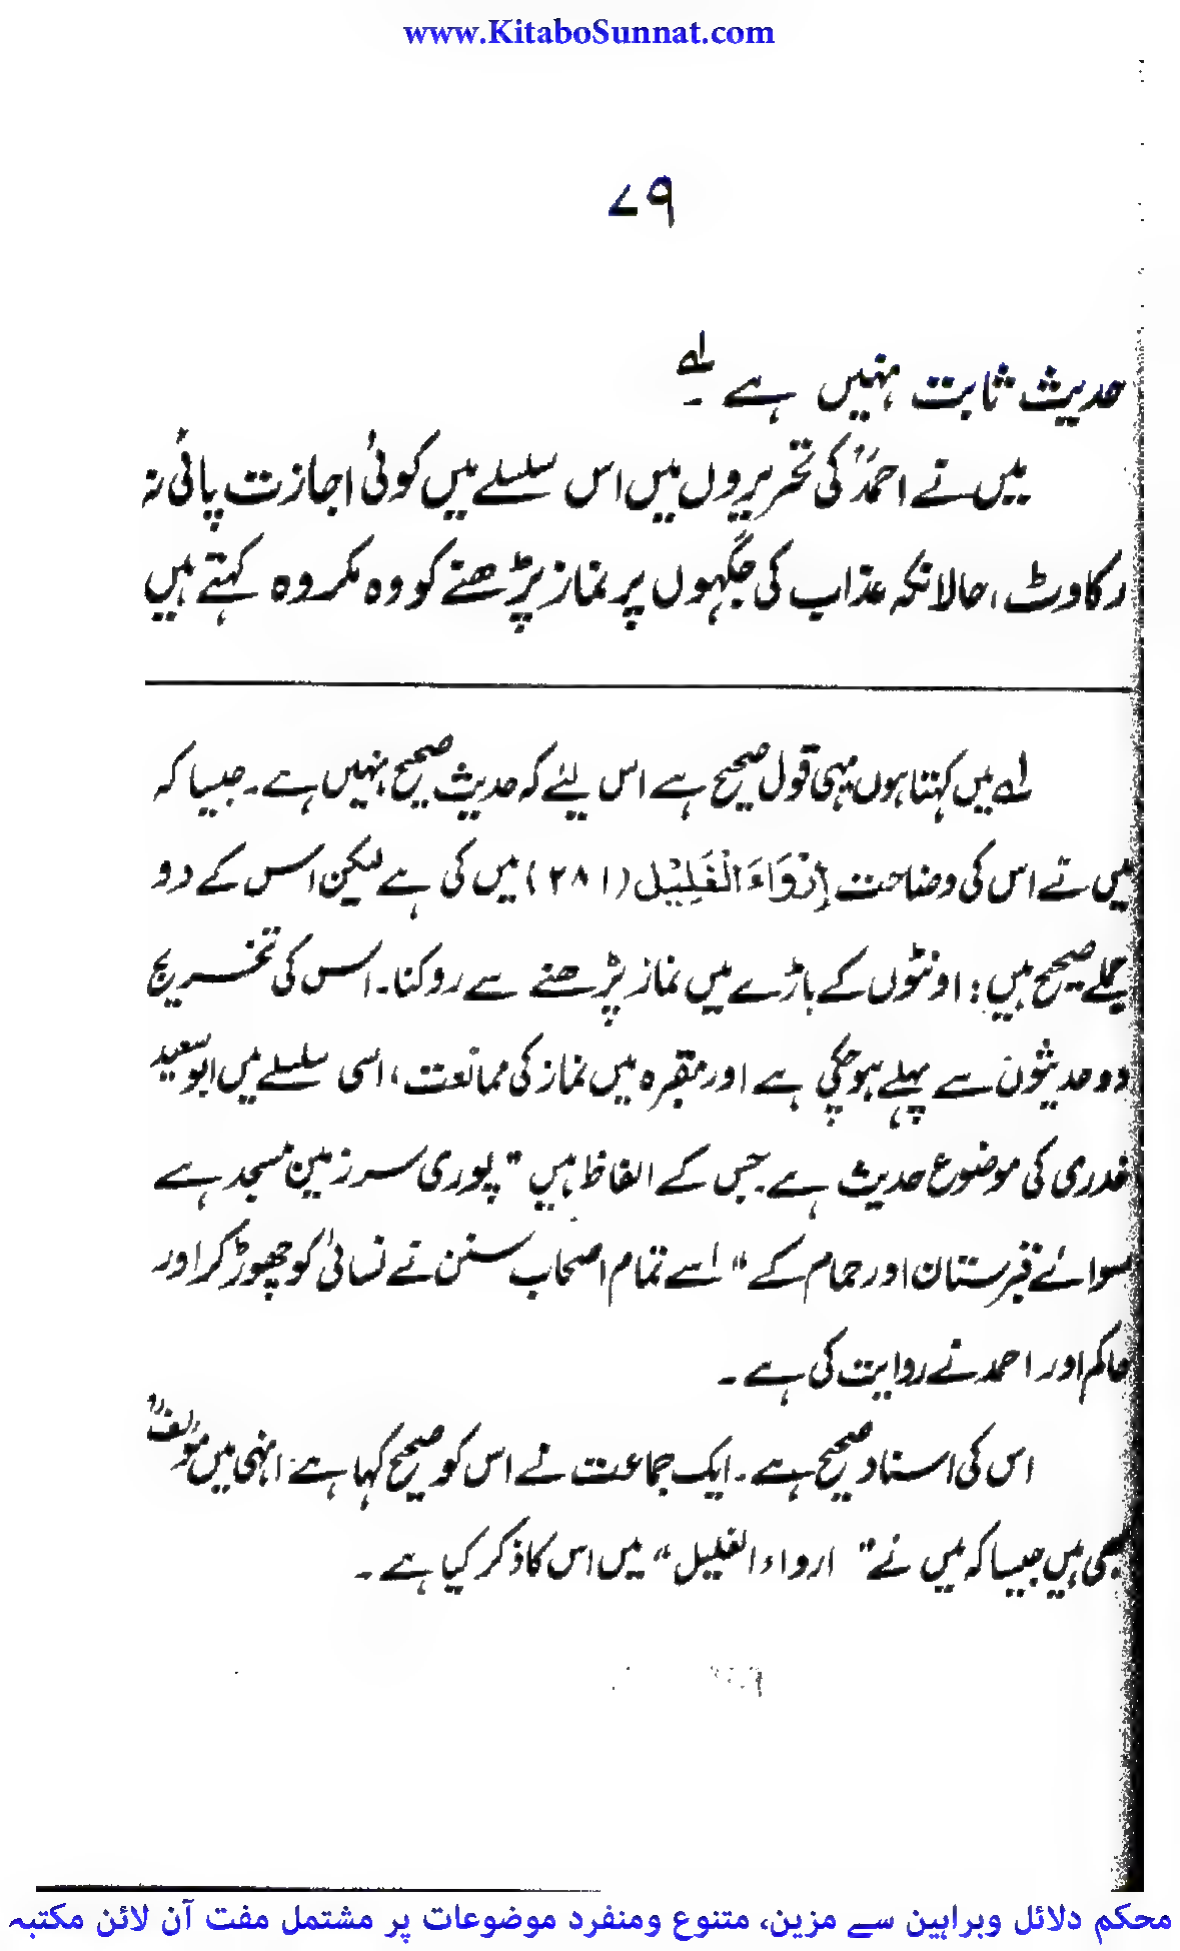 www.KitaboSunnat.com
۷۹
حدیث ثابت نہیں ہے ۔ لہ
میں نے احمدؒ کی تحریروں میں اس سلسلے میں کوئی اجازت پائی نہ
رکاوٹ، حالانکہ عذاب کی جگہوں پر نماز پڑھنے کو وہ مکروہ کہتے ہیں
لہ میں کہتا ہوں یہی قول صحیح ہے اس لیئے کہ حدیث صحیح نہیں ہے۔ جیسا کہ
میں نے اس کی وضاحت إِرْوَاءَ الْغَلِيْل (۲۸۱) میں کی ہے لیکن اس کے دو
جملے صحیح ہیں : اونٹوں کے باڑے میں نماز پڑھنے سے روکنا۔ اس کی تخریج
دو حدیثوں سے پہلے ہوچکی ہے اور مقبرہ میں نماز کی ممانعت، اسی سلسلے میں ابو سعید
خدری کی موضوع حدیث ہے جس کے الفاظ ہیں " پوری سرزمین مسجد ہے
سوائے قبرستان اور حمام کے " اسے تمام اصحاب سنن نے نسائی کو چھوڑ کر اور
حاکم اور احمد نے روایت کی ہے ۔
اس کی اسناد صحیح ہے ۔ ایک جماعت نے اس کو صحیح کہا ہے انہی میں مؤلفؒ
بھی ہیں جیسا کہ میں نے " ارواء الغلیل " میں اس کا ذکر کیا ہے ۔
محکم دلائل وبراہین سے مزین، متنوع ومنفرد موضوعات پر مشتمل مفت آن لائن مکتبہ